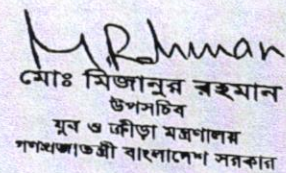 M.Rahman
মোঃ মিজানুর রহমান
উপসচিব
যুব ও ক্রীড়া মন্ত্রণালয়
গণপ্রজাতন্ত্রী বাংলাদেশ সরকার